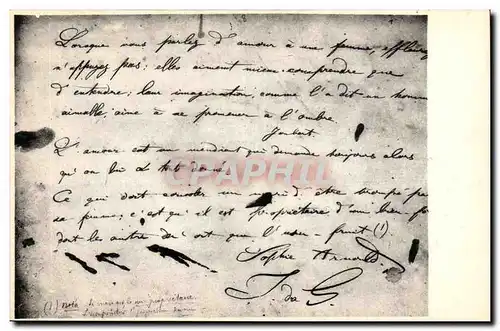 Lorsque vous parlez d'amour à une femme, effleurez
n'appuyez pas; elles aiment mieux comprendre que
d'entendre; leur imagination, comme l'a dit un homme
aimable, aime à se promener à l'ombre.
Joubert.
L'amour est un mendiant qui demande toujours alors
qu'on lui a tout donné.
Ce qui doit consoler un mari d'être trompé par
sa femme, c'est qu'il est propriétaire d'un bien
dont les autres n'ont que l'usu-fruit (1)
Sophie Arnould
J. da G.
(1) nota
CPARAMA